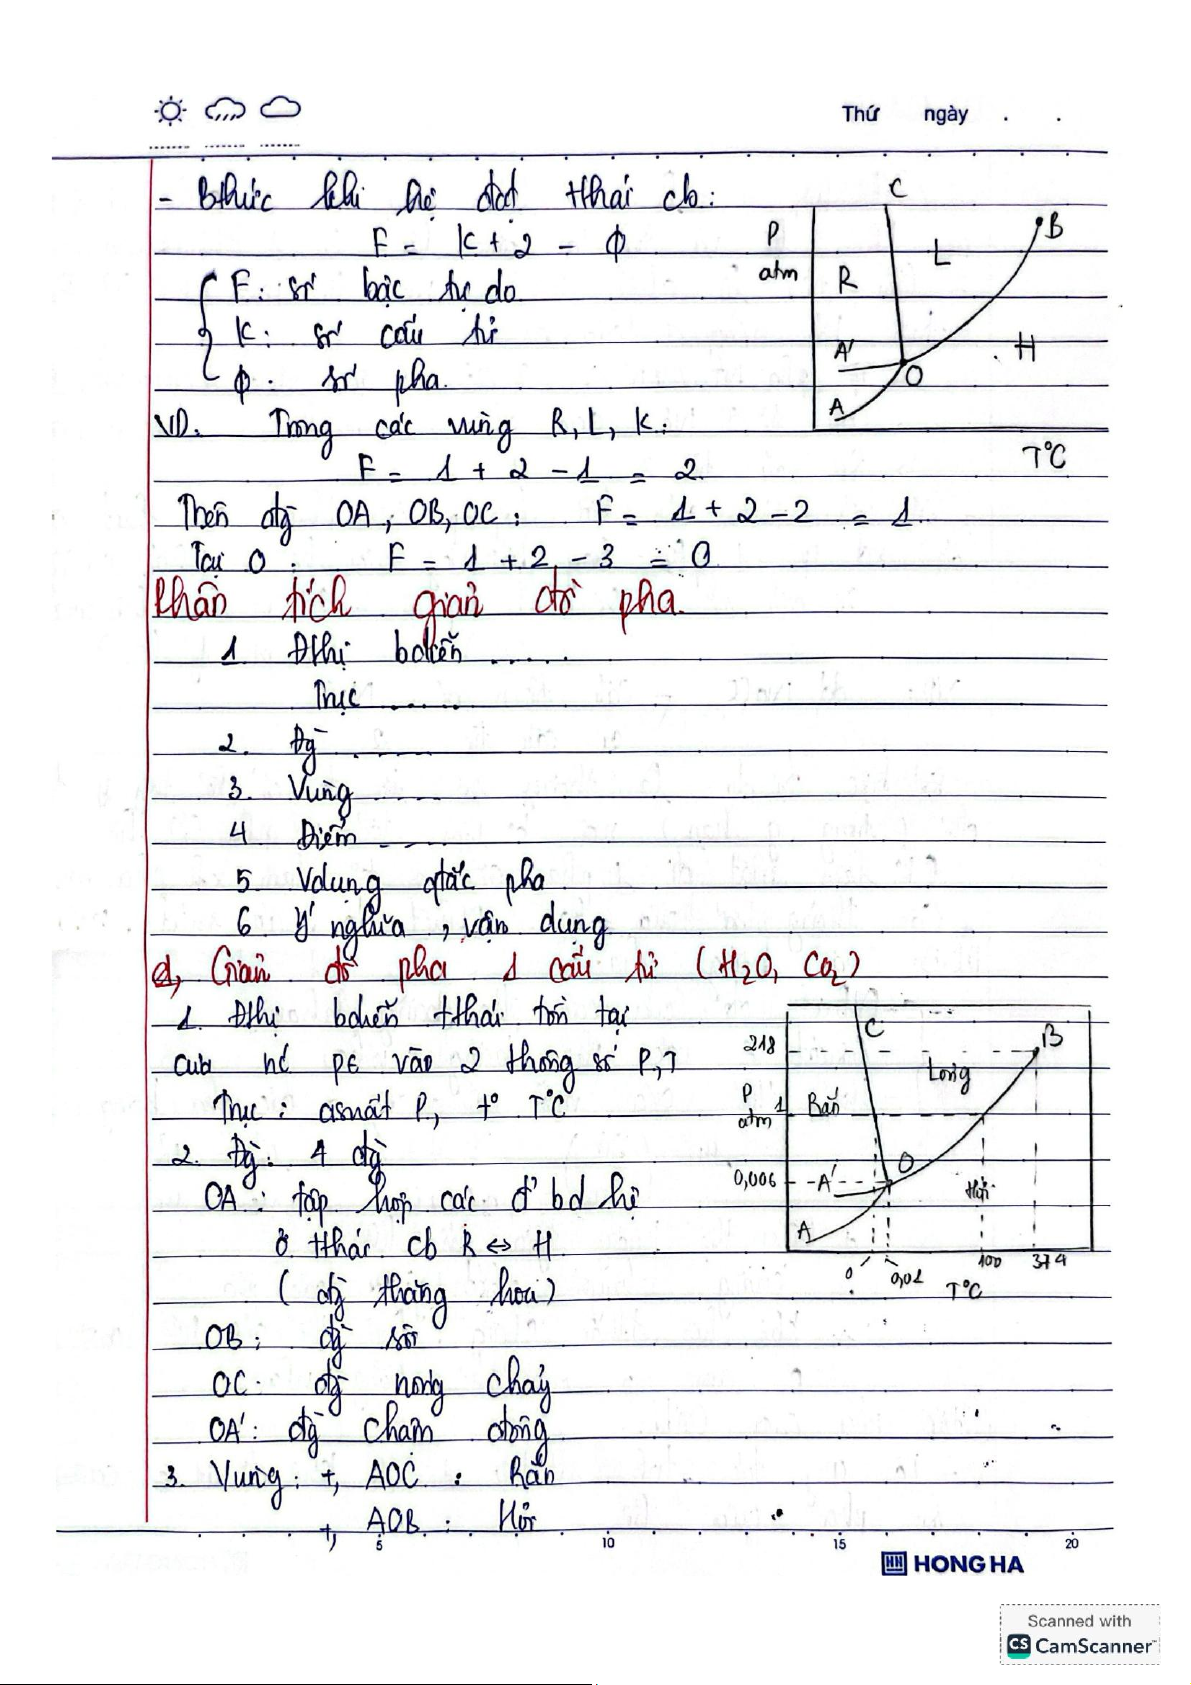 Thứ ngày . .
- Bthức khi hệ đạt tthái cb:
F = k + 2 - ϕ
F: số bậc tự do
k: số cấu tử
ϕ: số pha.
C
B
P
atm
R
L
A'
O
H
A
T°C
VD. Trong các vùng R, L, K:
F = 1 + 2 - 1 = 2.
Trên đg OA, OB, OC: F = 1 + 2 - 2 = 1
Tại O: F = 1 + 2 - 3 = 0
Phân tích giản đồ pha.
1. Đthị bdiễn ......
Trục ......
2. Đg ......
3. Vùng ......
4 Điểm ......
5 Vdụng qtắc pha
6 Ý nghĩa, vận dụng
Giản đồ pha 1 cấu tử (H2O, CO2)
1. Đthị bdiễn tthái tồn tại
của nc pt vào 2 thông số P, T
Trục: asuất P, t° T°C
2. Đg: 4 đg
OA: tập hợp các đ' bd hệ
ở tthái cb R ⇔ H
(đg thăng hoa)
OB: đg sôi
OC: đg nóng chảy
OA': đg chậm đông
3. Vùng: +, AOC: Rắn
+, AOB: Hơi
C
B
218
Lỏng
P
atm
1
Rắn
O
0,006
A'
Hơi
A
0
0,01
100
374
T°C
5 10 15 20
HONG HA
Scanned with
CS CamScanner